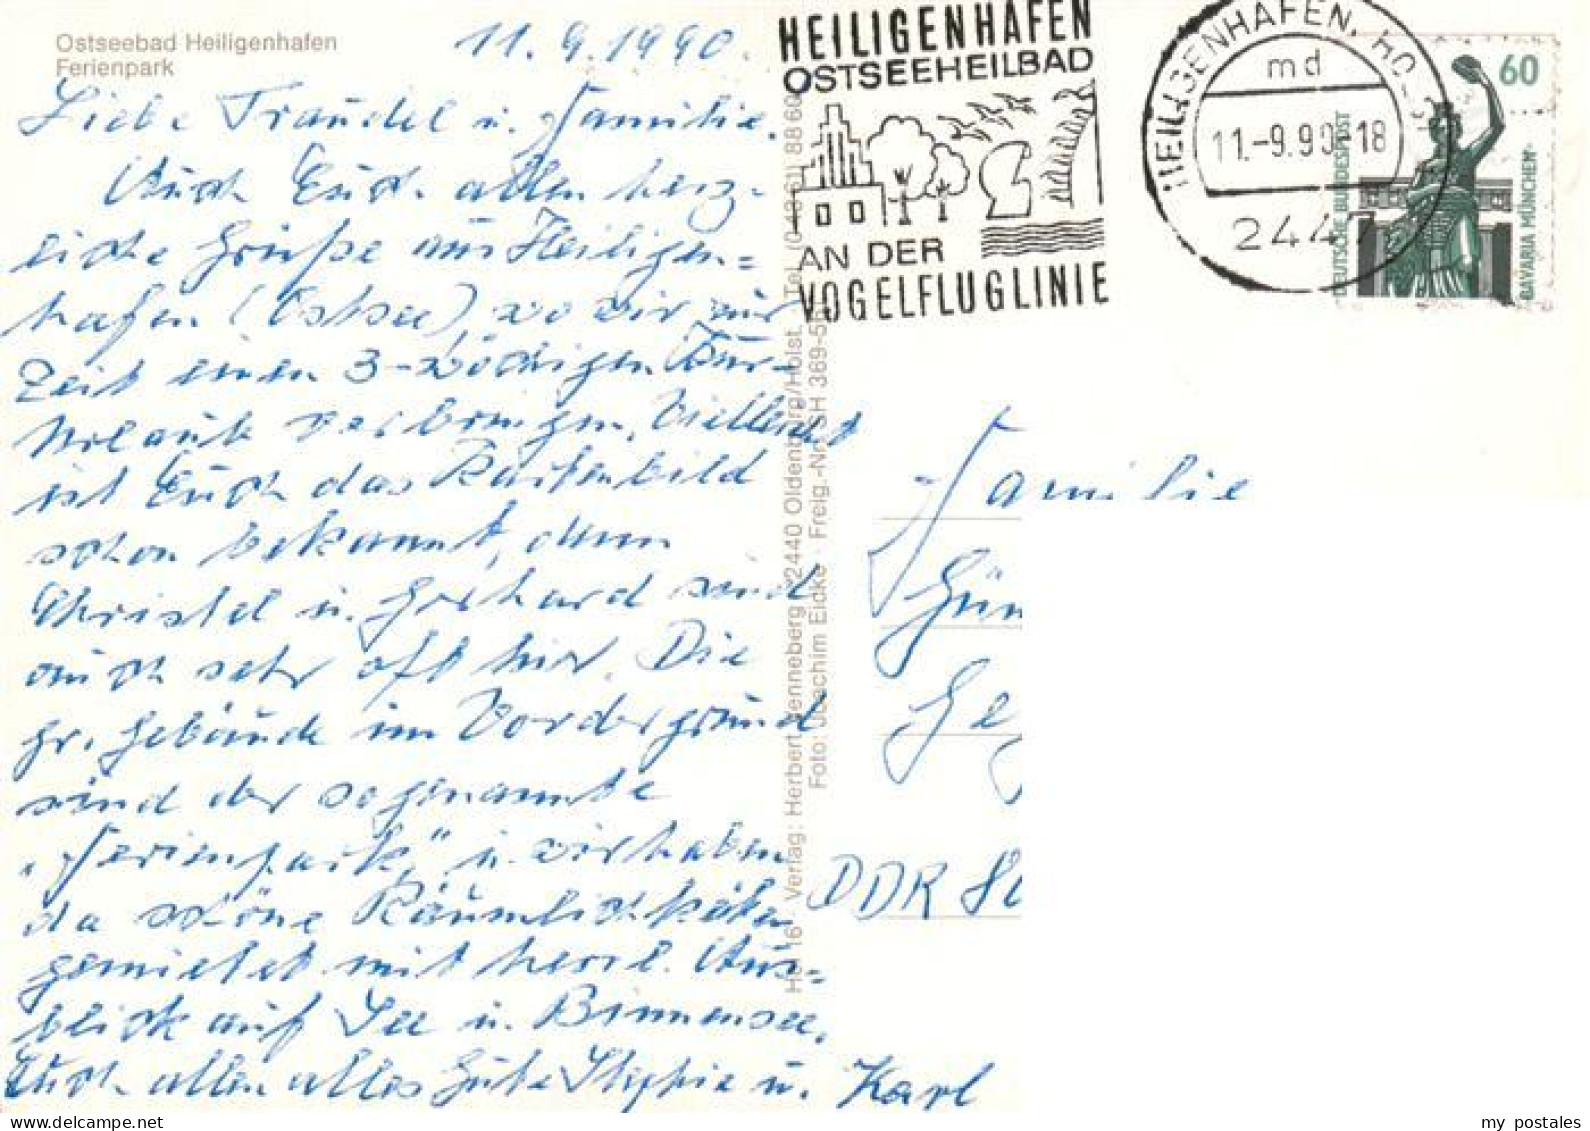 Ostseebad Heiligenhafen
Ferienpark
11.9.1990.
Liebe Traudel u. Familie.
Auch Euch allen herz-
liche Grüße aus Heiligen=
hafen (Ostsee), wo wir zur
Zeit einen 3-wöchigen Kur-
Urlaub verbringen. Vielleicht
ist Euch das Kartenbild
schon bekannt, denn
Christel u. Gerhard sind
auch sehr oft hier. Die
gr. Gebäude im Vordergrund
sind der sogenannte
"Ferienpark," u. wir haben
da schöne Räumlichkeiten
gemietet mit herrl. Aus=
blick auf See u. Binnensee.
Euch allen alles Gute Stephie u. Karl
Verlag: Herbert Henneberg · 2440 Oldenburg/Holst.
Foto: Joachim Eidke · Freig.-Nr. SH 369-5
HEILIGENHAFEN
OSTSEEHEILBAD
AN DER
VOGELFLUGLINIE
HEILIGENHAFEN, HO
md
11.-9.90-18
2447
60
DEUTSCHE BUNDESPOST
BAVARIA MÜNCHEN
Familie
Gün
Ge
DDR
my postales